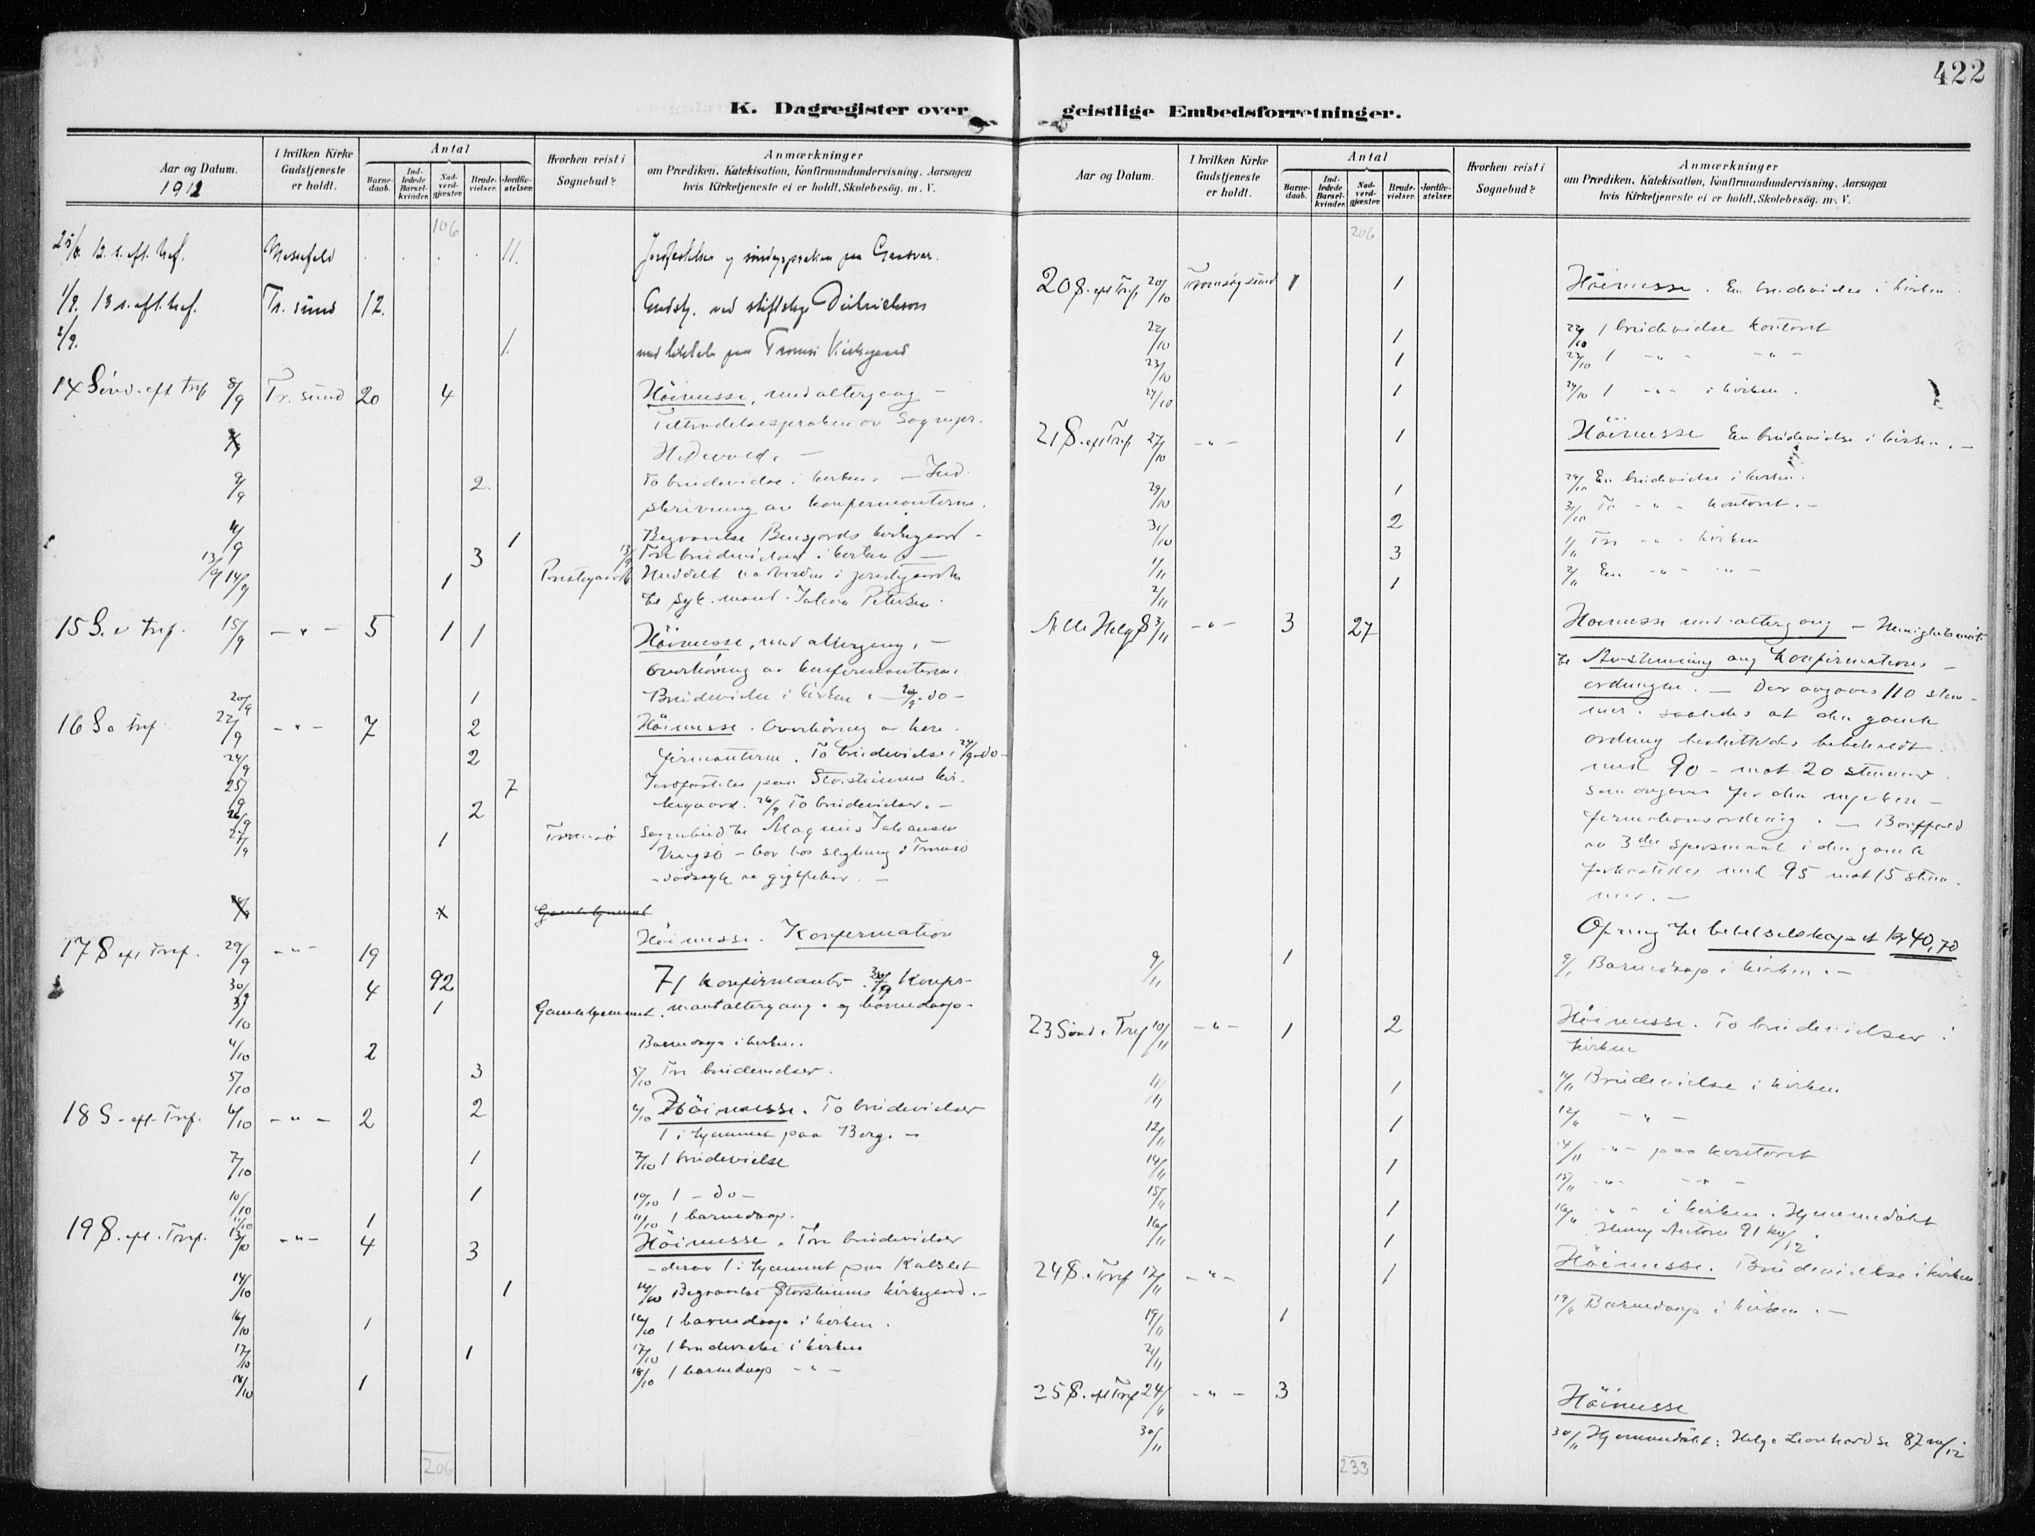 422
K. Dagregister over geistlige Embedsforretninger.
Aar og Datum.
1912
I hvilken Kirke Gudstjeneste er holdt.
Antal
Barnedaab.
Indledede Barselkvinder.
Nadverdgjæster.
Brudevielser.
Jordfæstelser.
Hvorhen reist i Sognebud?
Anmærkninger
om Prædiken, Katekisation, Konfirmandundervisning, Aarsagen
hvis Kirketjeneste ei er holdt, Skolebesøg. m. V.
106
25/8. 12. s. eft. tref. 11.
1/9. 13 s. eft. tref. Tr. sund 12.
2/9. 1.
14 Sönd. eft tref 8/9 Tr. sund 20 4 Höimesse, med altergang -
Tiltrædelsespræken av Sognepr.
9/9 2. To brudevielse i kirken. - Ind
skrivning av konfirmanterne.
11/9 1 Begravelse Bensjords kirkegaard -
13/9 3 13/9 Tre brudevielser i kirken -
14/9 1 Prestegaarden Meddelt nadverden i prestegaarden
15 S. e tref. 15/9 - " - 5 1 1 Höimesse, med altergang. -
overhöring av konfirmanterne.
20/9 1 Brudevielse i kirken. - 20/9 do -
16 S e tref. 22/9 - " - 7 2 Höimesse. Overhöring av kon-
24/9 2 firmanterne. To brudevielse. 24/9 do -
25/9 7 Jordfæstelse paa Storsteinnes kir-
26/9 2 kegaard. 26/9 To brudevielser. -
27/9 1 Tromsö Sognebud til Magnus Johansen
Vengsö - bor hos slegtning i Tromsö
- dödssyk av gigtfeber. -
x Gamlehjemmet
17 S eft Tref. 29/9 - " - 19 Höimesse. Konfirmation
30/9 4 92 71 konfirmanter. 30/9 Konfir-
3/10 1 Gamlehjemmet. mantaltergang. og barnedaap.
4/10 2 Barnedaap i kirken.
5/10 3 5/10 Tre brudevielser.
18 S. eft. Tref. 6/10 - " - 2 2 6/10 Höimesse. To brudevielser
1 i hjemmet paa Berg. -
7/10 1 7/10 1 brudevielse
10/10 1 10/10 1 - do -
11/10 1 11/10 1 barnedaap.
19 S. eft. Tref. 13/10 - " - 4 3 Höimesse. Tre brudevielser
- derav 1 i hjemmet paa Kalslet
14/10 1 14/10 Begravelse Storsteinnes kirkegaard. -
16/10 1 16/10 1 barnedaap i kirken.
17/10 1 17/10 1 brudevielse i kirken
18/10 1 18/10 1 barnedaap - " -
206
Aar og Datum.
I hvilken Kirke Gudstjeneste er holdt.
Antal
Barnedaab.
Indledede Barselkvinder.
Nadverdgjæster.
Brudevielser.
Jordfæstelser.
Hvorhen reist i Sognebud?
Anmærkninger
om Prædiken, Katekisation, Konfirmandundervisning, Aarsagen
hvis Kirketjeneste ei er holdt, Skolebesög. m. V.
206
20 S. eft Tref. 20/10 Tromsöysund 1 1 Höimesse. En brudevielse i kirken.
22/10 1 22/10 1 brudevielse kontoret
23/10 1 23/10 1 - " - - " -
24/10 1 24/10 1 - " - i kirken.
21 S. eft Tref 27/10 - " - 1 Höimesse En brudevielse i kirken. -
29/10 1 29/10 En brudevielse i kirken.
31/10 2 31/10 To - " - kontoret. -
1/11 3 1/11 Tre - " - kirken
2/11 1 2/11 En - " - - " -
Alle Helg S 3/11 - " - 3 27 Höimesse med altergang - Menighetsmöte
til Avstemning ang konfirmations-
ordningen. - Der avgaves 110 stem-
mer. saaledes at den gamle
ordning besluttedes beholdt
med 90 - mot 20 stemmer
som avgaves for den nye kon-
firmationsordning. - Bortfald
av 3die spörsmaal i den gamle
forkastedes med 95 mot 15 stem-
mer. -
Ofring til bibelselskapet Kr 40,70
9/11 1 9/11 Barnedaap i kirken. -
23 Sönd e Tref 10/11 - " - 1 2 Höimesse. To brudevielser i
kirken
11/11 1 11/11 Brudevielse i kirken
12/11 1 12/11 - " -
14/11 1 14/11 - " - paa kontoret
15/11 1 15/11 - " - - " -
16/11 1 16/11 - " - i kirken. Hjemmedöbt
24 S. e Tref 17/11 - " - 1 Höimesse. Brudevielse i kirken.
19/11 1 19/11 Barnedaap i kirken. -
21/11
25 S. eft Tref 24/11 - " - 3 Höimesse
30/11 30/11 Hjemmedöbt: Helge
233